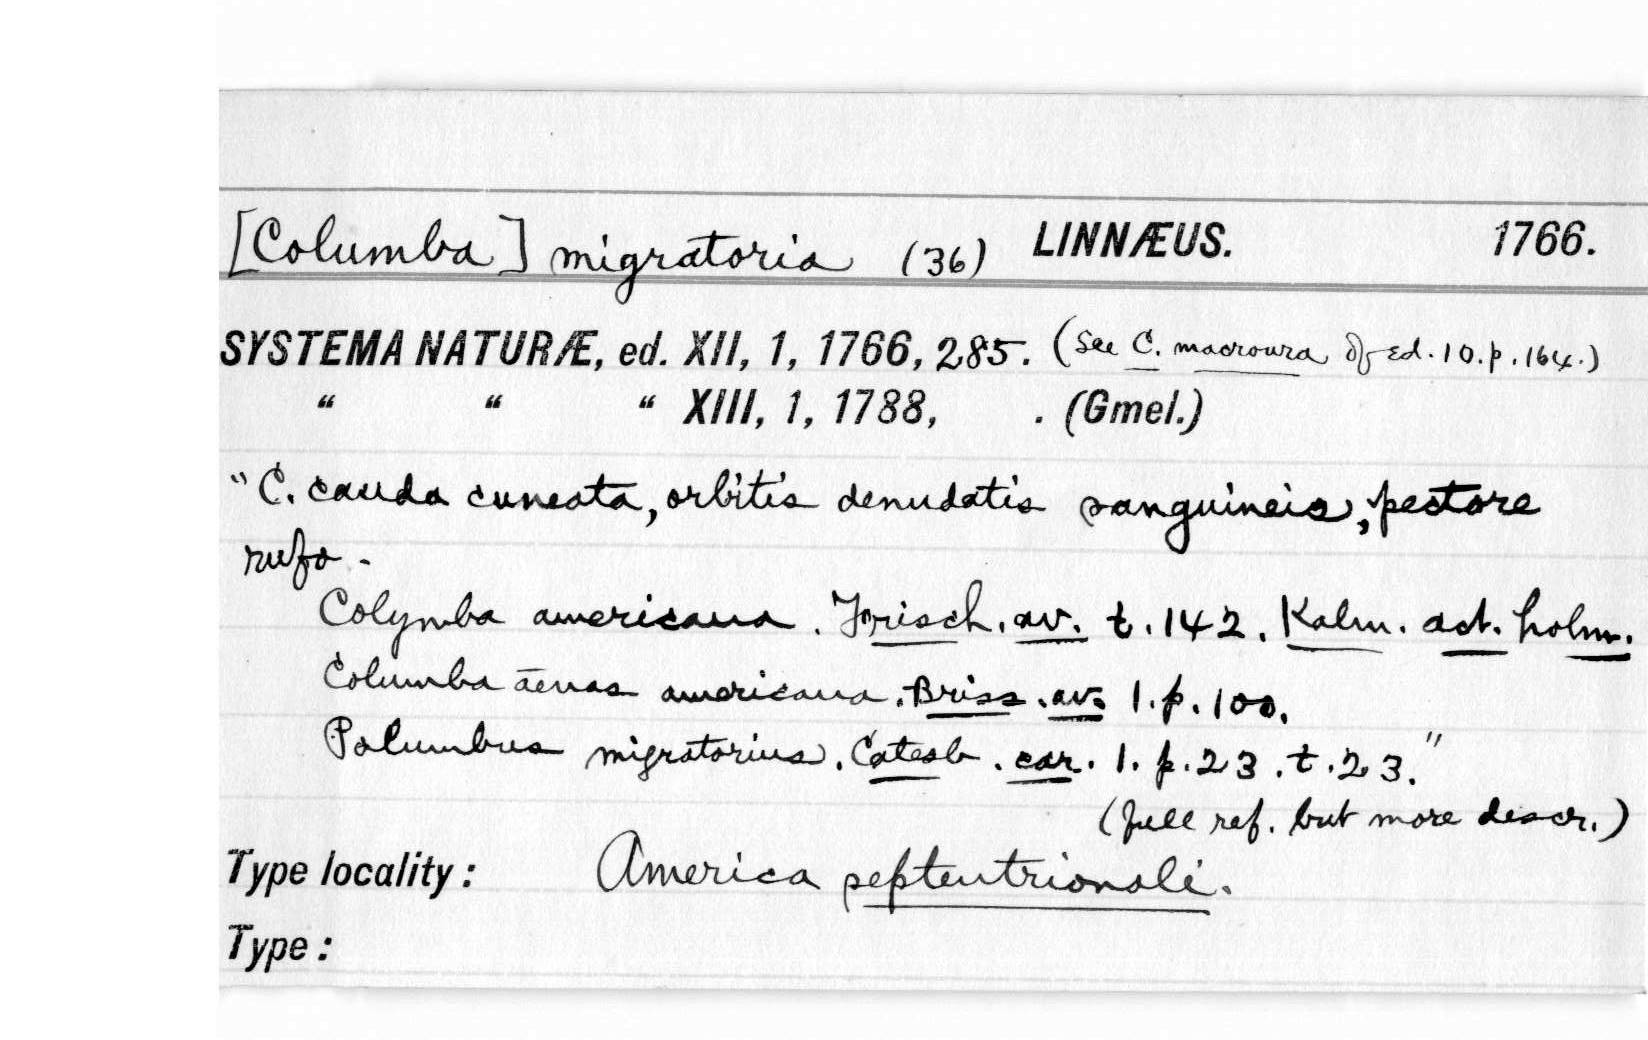 [Columba] migratoria (36) LINNÆUS. 1766.
SYSTEMA NATURÆ, ed. XII, 1, 1766, 285. (See C. macroura of ed. 10. p. 164.)
“ “ “ XIII, 1, 1788, . (Gmel.)
"C. cauda cuneata, orbitis denudatis sanguineis, pectore
rufo.
Colymba americana. Frisch. av. t. 142. Kalm. act. holm.
Columba āenas americana. Briss. av. 1. p. 100.
Palumbus migratorius. Catesb. car. 1. p. 23. t. 23."
(full ref. but more descr.)
Type locality: America septentrionali.
Type: